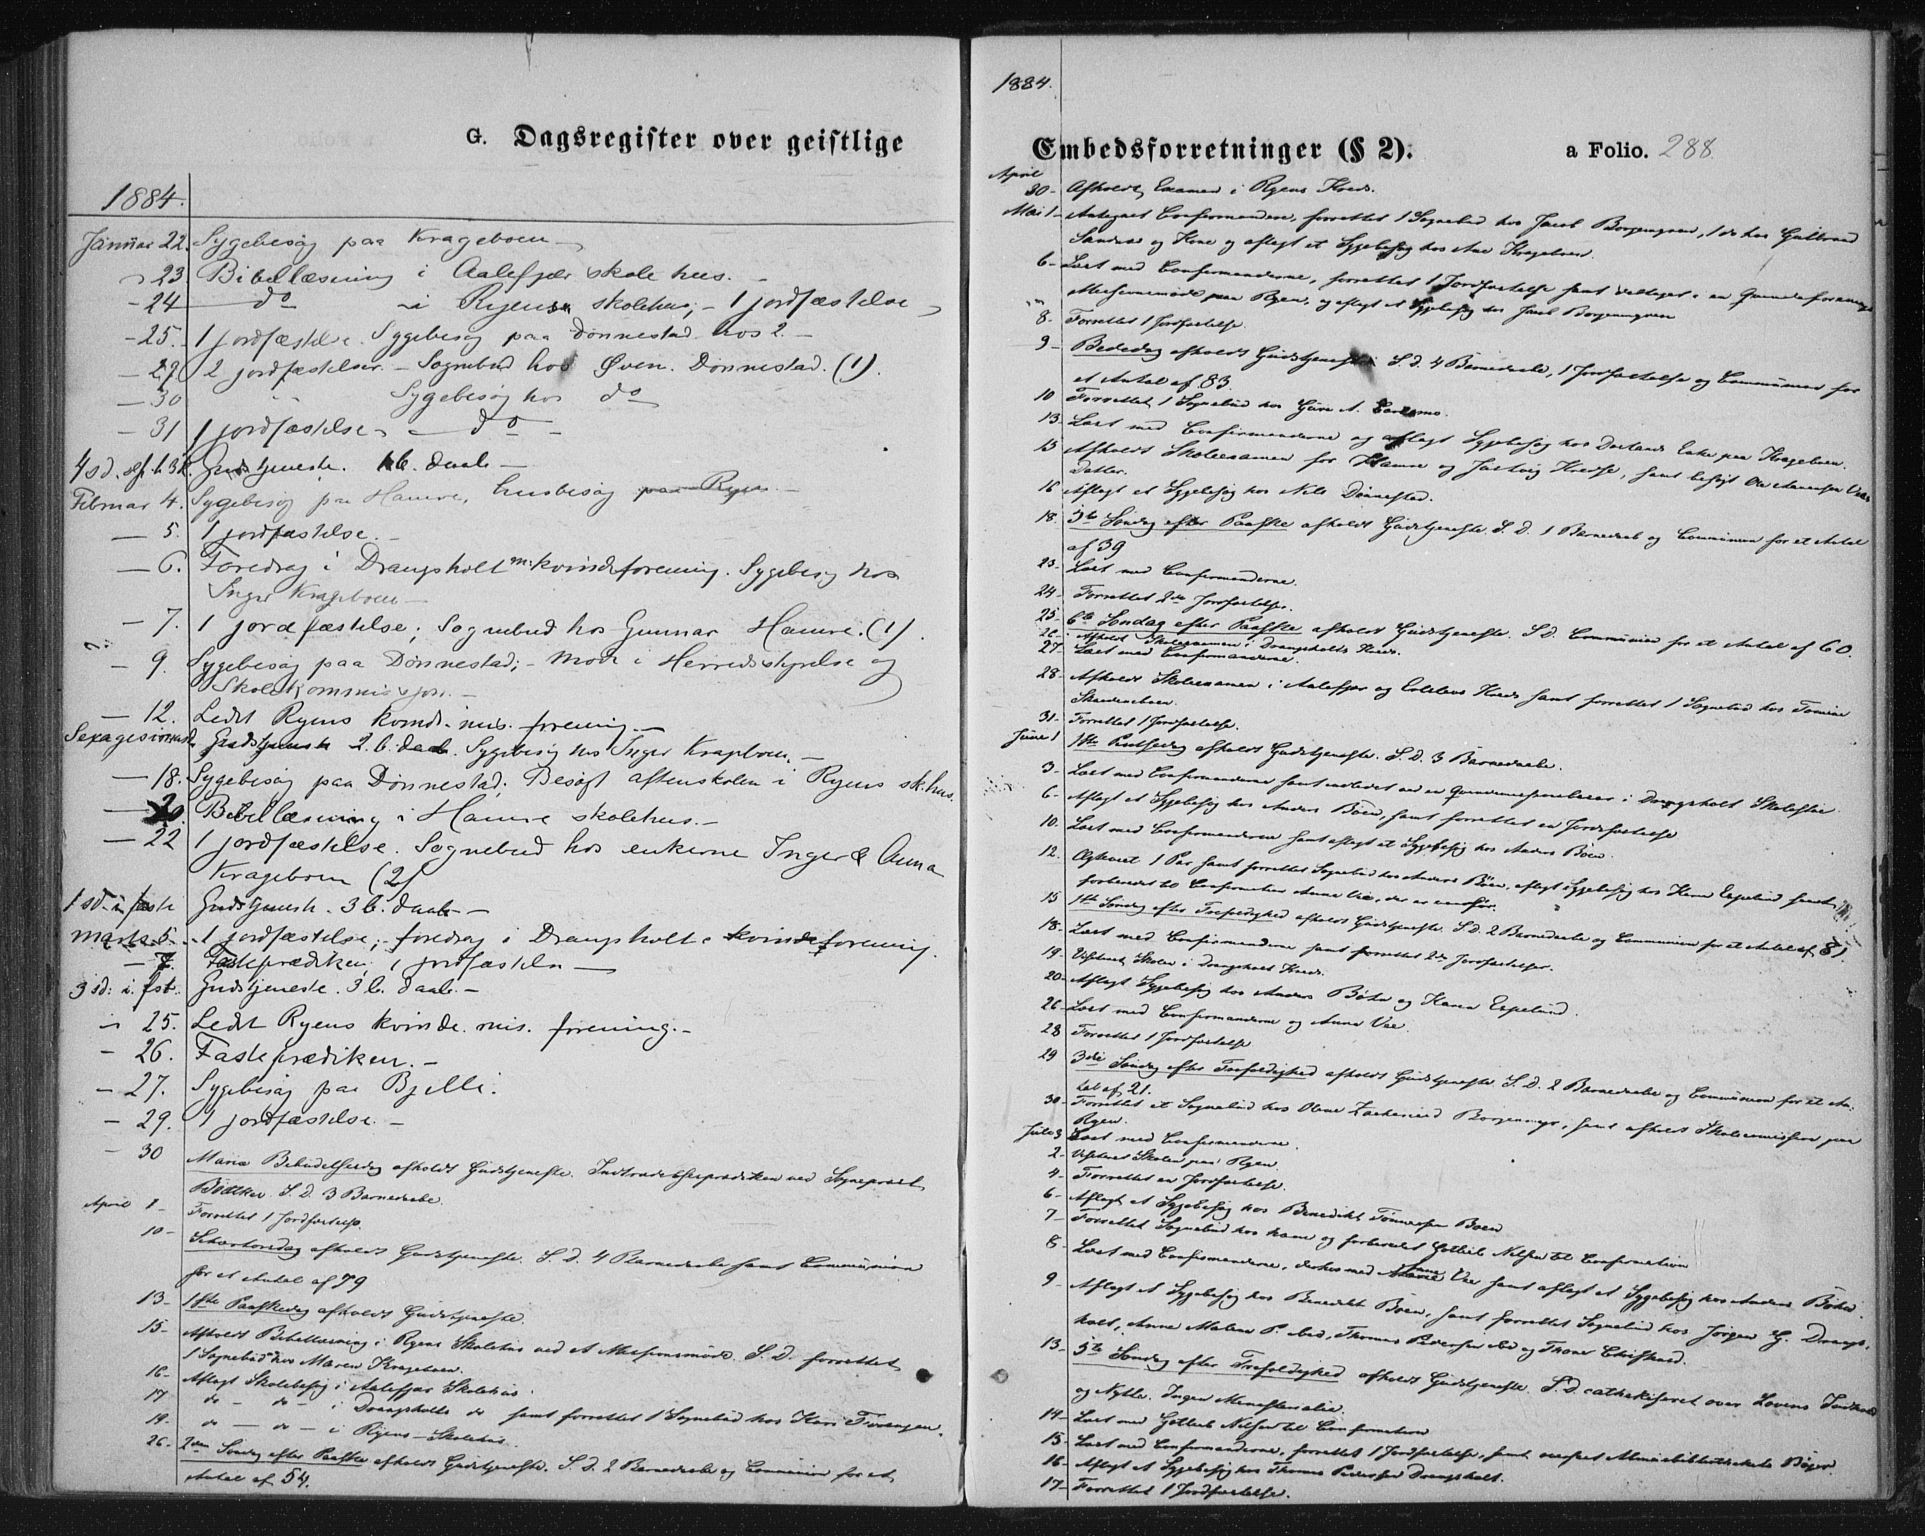 G. Dagsregister over geistlige
1884.
Januar 22. Sygebesøg paa Krageboen
23 Bibellæsning i Aalefjær skolehus.
- 24 do i Ryens skolehus; - 1 jordfæstelse
- 25. 1 jordfæstelse. Sygebesøg paa Dønnestad hos 2. -
- 29. 2 jordfæstelser. - Sognebud hos Øven. Dønnestad. (1).
- 30 Sygebesøg hos do
- 31 1 jordfæstelse do
4 sd. Gudstjeneste. 1 b. daab -
Februar 4. Sygebesøg paa Hamre, husbesøg paa Ryen. -
- 5. 1 jordfæstelse. -
- 6. Foredrag i Drangsholt m. kvindeforening. Sygebesøg hos
Inger Krageboen -
- 7. 1 jordfæstelse; Sognebud hos Gunnar Hamre. (1).
- 9. Sygebesøg paa Dønnestad; - Møde i Herredsstyrelse og
Skolekommissjon. -
- 12. Ledet Ryens kvinde. mis. forening. -
Sexagesima Gudstjeneste 2 b. daab. Sygebesøg hos Inger Krageboen. -
- 18. Sygebesøg paa Dønnestad; Besøgt aftenskolen i Ryens sk.hus.
- 20. Bibellæsning i Hamre skolehus. -
- 22 1 jordfæstelse. Sognebud hos enkerne Inger & Anna
Krageboen (2)
1 sd. i faste Gudstjeneste. 3 b. daab -
Marts 5. 1 jordfæstelse; foredrag i Drangsholt kvindeforening.
- 7. Fasteprædiken; 1 jordfæstelse -
3 sd. i fst. Gudstjeneste. 3 b. daab. -
- 25. Ledet Ryens kvinde. mis. forening. -
- 26. Fasteprædiken. -
- 27. Sygebesøg paa Bjelli.
- 29. 1 jordfæstelse. -
- 30 Mariæ Bebudelsesdag afholdt Gudstjeneste. Indtrædelsesprædiken ved Sognepræst
S. D. 3 Barnedaabe.
April 8 - Forrettet 1 Jordfæstelse.
10 - Skjærtorsdag afholdt Gudstjeneste. S. D. 4 Barnedaabe samt Communion
for et Antal af 79
13 - 1ste Paaskedag afholdt Gudstjeneste.
15 - Afholdt Bibellæsning i Ryens Skolehus ved et Missionsmøde. S. D. forrettet
1 Sognebud hos Maren Krageboen.
16 - Aflagt Skolebesøg i Aalefjær Skolehus.
17 do - do - i Drangsholts do samt forrettet 1 Sognebud hos Kari
19. do - do - i Ryens - Skolehus.
26 - 2den Søndag efter Paaske afholdt Gudstjeneste. S. D. 2 Barnedaabe og Communion for et
Antal af 54.
1884.
Embedsforretninger (§ 2). a Folio. 288
April 30 - Afholdt Examen i Ryens Kreds.
Mai 1 - Antegnet Confirmandere, forrettet 1 Sognebud hos Jacob Borgengren, 1 do hos
og Kone og aflagt et Sygebesøg hos Ane Krageboen.
6 - Læst med Confirmanderne, forrettet 1 Jordfæstelse samt deltaget i en Qvindeforenings
Missionsmøde paa Ryen, og aflagt et Sygebesøg hos Jacob Borgengren
8. Forrettet 1 Jordfæstelse.
9 - Bededag afholdt Gudstjeneste. S. d. 4 Barnedaabe, 1 Jordfæstelse og Communion for
et Antal af 83.
10 Forrettet 1 Sognebud hos
13. Læst med Confirmanderne og aflagt Sygebesøg hos Enke paa Krageboen.
15 Afholdt Skoleexamen for Hamre og Kredse, samt besøgt
Datter.
16 Aflagt et Sygebesøg hos Nils Dønnestad.
18. 5te Søndag efter Paaske afholdt Gudstjeneste. S. D. 1 Barnedaab og Communion for et Antal
af 39
23. Læst med Confirmanderne.
24. Forrettet 2de Jordfæstelser.
25. 6te Søndag efter Paaske afholdt Gudstjeneste. S. D. Communion for et Antal af 60.
26. Afholdt Skoleexamen i Drangsholts Kreds.
27. Læst med Confirmanderne.
28. Afholdt Skoleexamen i Aalefjær og Kreds samt forrettet 1 Sognebud hos
31. Forrettet 1 Jordfæstelse.
Juni 1 1ste Pintsedag afholdt Gudstjeneste. S. D. 3 Barnedaabe.
3. Læst med Confirmanderne samt Drangsholt Skolehus
6. Aflagt et Sygebesøg hos Anders Boen, samt forrettet en Jordfæstelse
10. Læst med Confirmanderne samt aflagt et Sygebesøg hos Anders Boen.
12. Ægteviet 1 Par samt forrettet Sognebud hos Anders Böen, aflagt Sygebesøg hos Espelund samt
forberedt til Confirmation Anna Vee, der er vanfør.
15 1ste Søndag efter Trefoldighed afholdt Gudstjeneste. S. D. 2 Barnedaabe og Communion for et Antal af 81.
18. Læst med Confirmanderne samt forrettet 2de Jordfæstelser.
19. Visiteret Skolen i Drangsholt Kreds.
20. Aflagt Sygebesøg hos Anders Böen og Espelund.
26. Læst med Confirmanderne og Anna Vee.
28 Forrettet 1 Jordfæstelse
29 3die Søndag efter Trefoldighed afholdt Gudstjeneste. S. D. 2 Barnedaabe og Communion for et An-
tal af 21.
30 - Forrettet et Sognebud hos Olene Borgengren, samt afholdt Skolecommission paa
Ryen.
Juli Læst med Confirmanderne.
2 - Visiteret Skolen paa Ryen.
4 - Forrettet en Jordfæstelse.
6 - Aflagt et Sygebesøg hos Benedikt Tønnesen Boen
7 - Forrettet Sognebud hos ham og forberedt Gotlieb Nilsen til Confirmation
8 - Læst med Confirmanderne, Anna Vee samt aflagt et Sygebesøg hos Anders
9 - Aflagt et Sygebesøg hos Benedikt Boen, samt forrettet Sognebud hos Jørgen G. Drangs-
holt, Anne Malene P. ibd, Thomas Pedersen ibd og Thore
13. 5te Søndag efter Trefoldighed afholdt Gudstjeneste. S. d. cathekiseret over Lovens Indhold
og Nytte. Ingen Ministerialia.
14 - Læst med Gotlieb Nilsen til Confirmation
15 - Læst med Confirmanderne, forrettet 1 Jordfæstelse, samt Bøger.
16 - Aflagt et Sygebesøg hos Thomas Pedersen Drangsholt.
17 - Forrettet 1 Jordfæstelse.